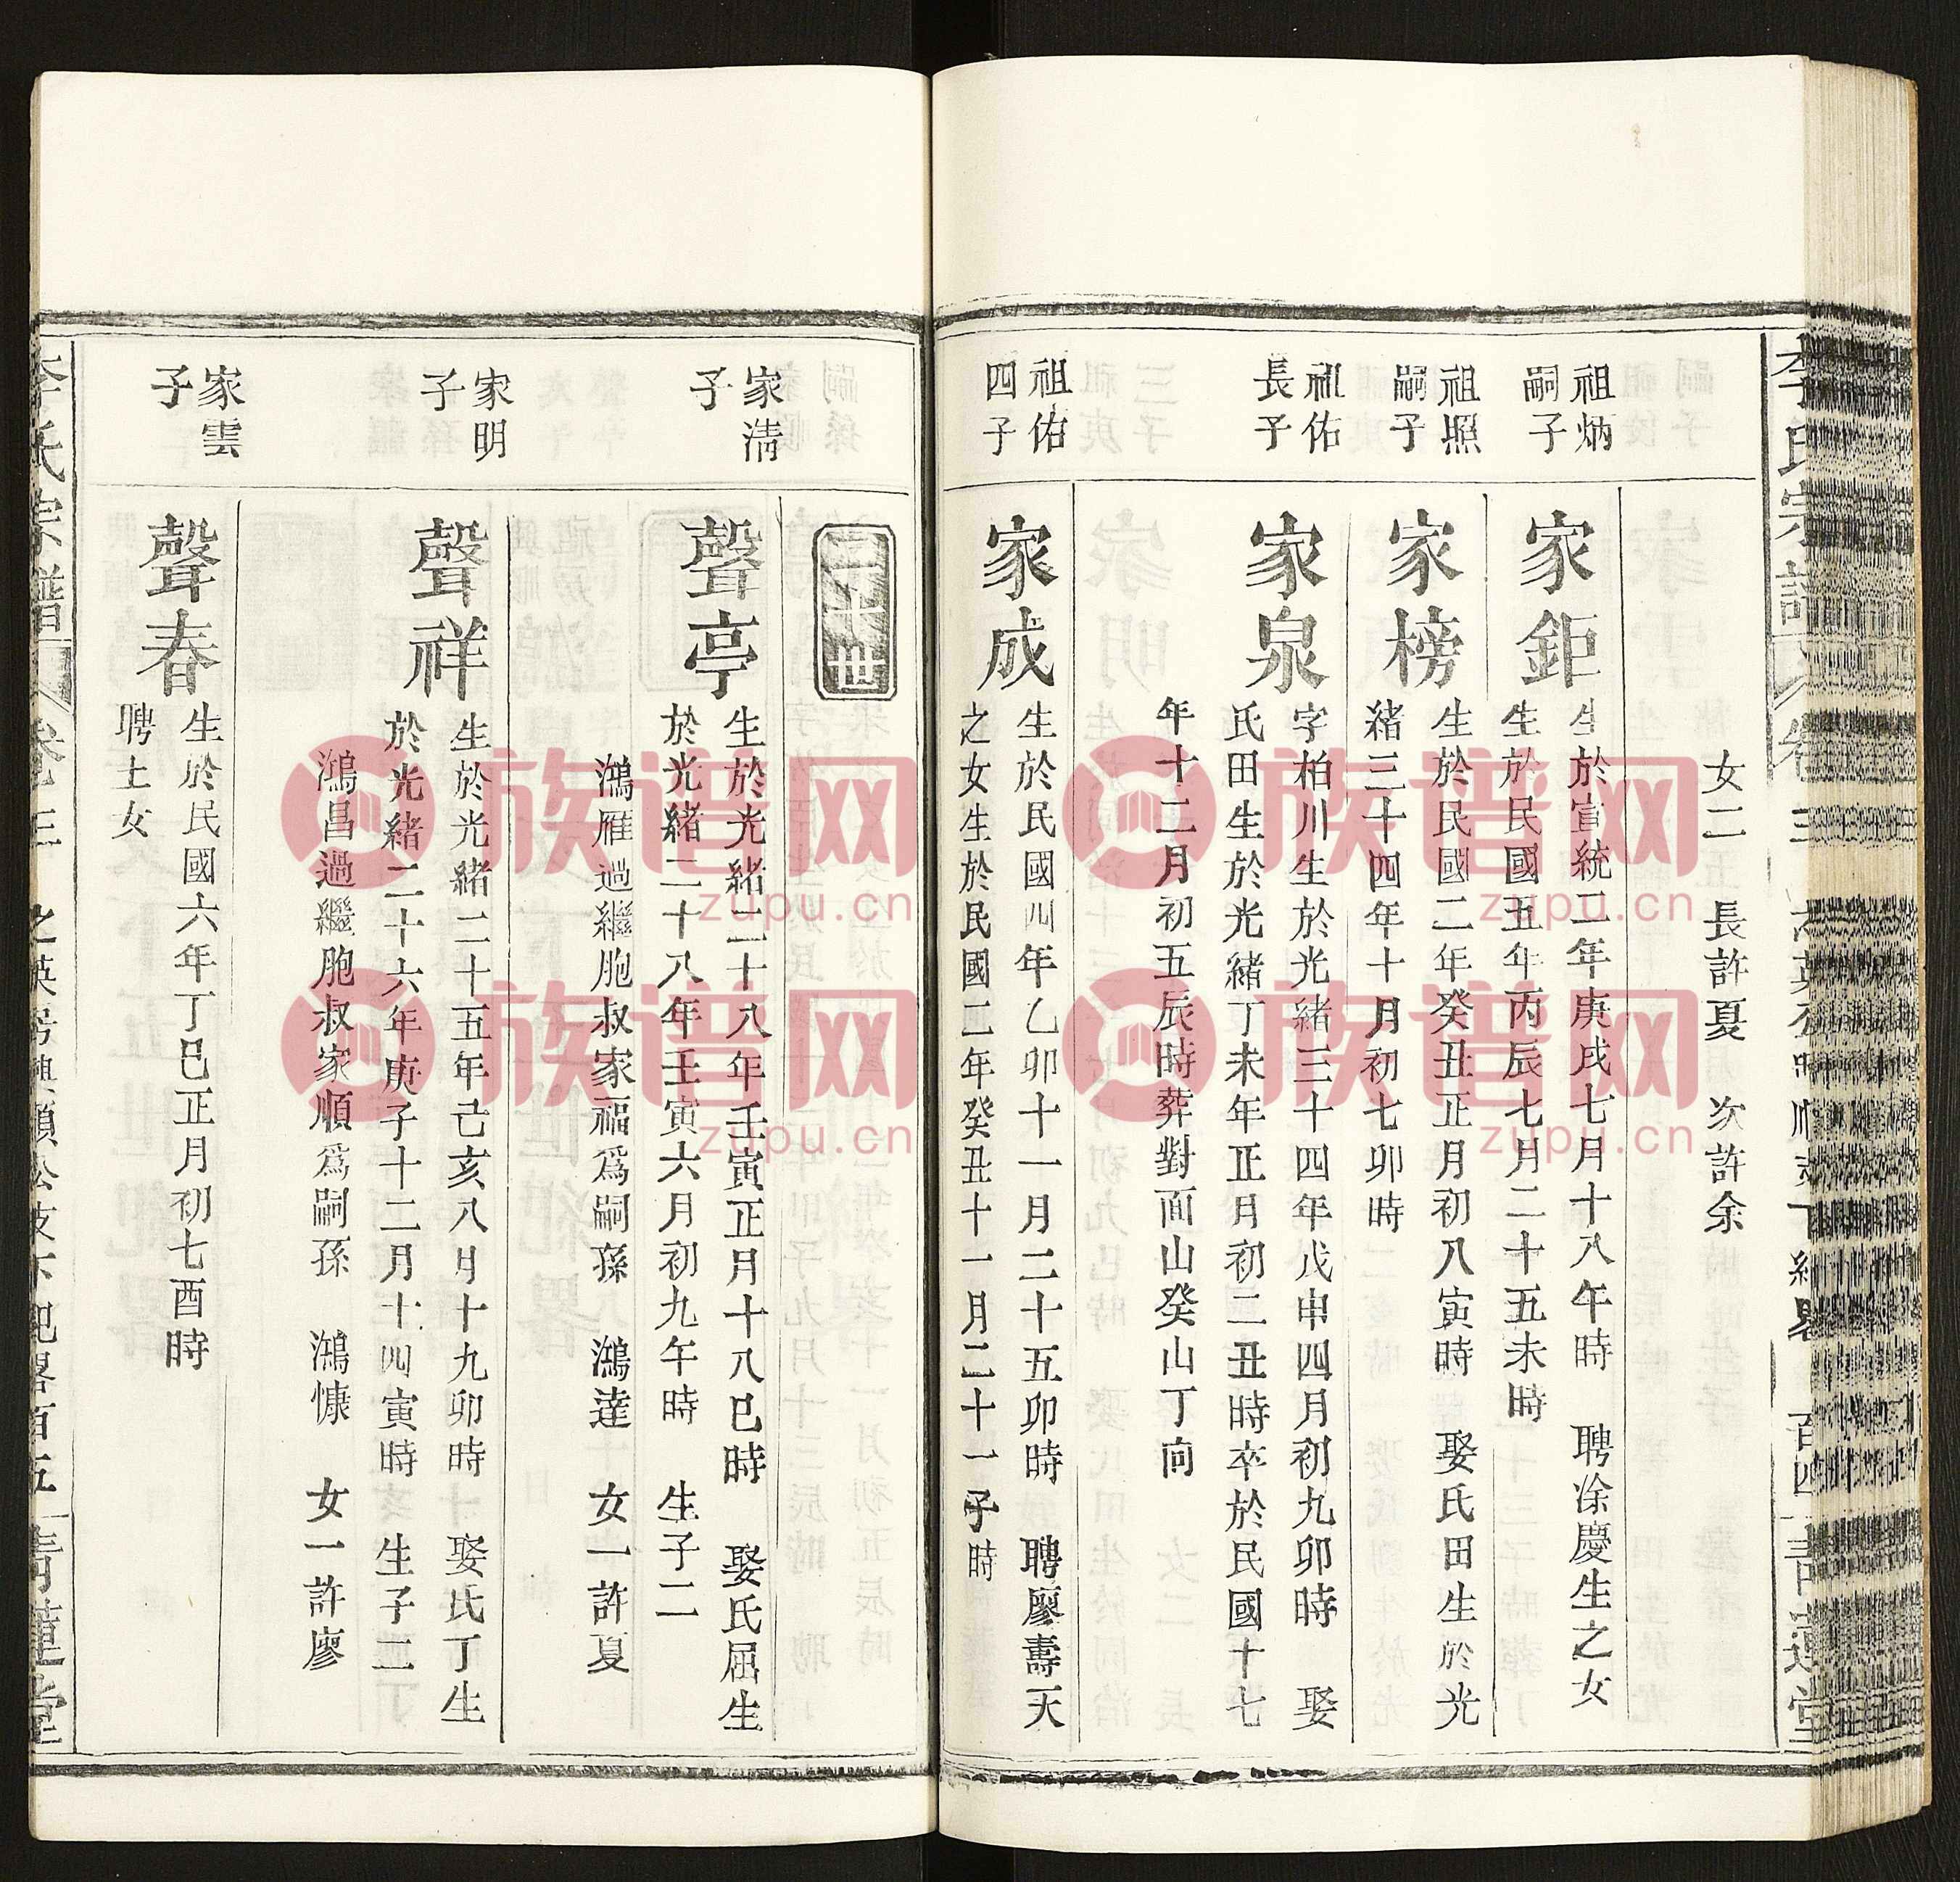 女二　長許夏　次許余
祖炳
嗣子
家鉅
生於宣統二年庚戌七月十八午時　聘涂慶生之女
生於民國五年丙辰七月二十五未時
祖照
嗣子
家榜
生於民國二年癸丑正月初八寅時　娶氏田生於光
緒三十四年十月初七卯時
祖佑
長子
家泉
字柏川生於光緒三十四年戊申四月初九卯時　娶
氏田生於光緒丁未年正月初二丑時卒於民國十七
年十二月初五辰時葬對面山癸山丁向
祖佑
四子
家成
生於民國四年乙卯十一月二十五卯時　聘廖壽天
之女生於民國二年癸丑十一月二十一子時
二十世
家清
子
聲亭
生於光緒二十八年壬寅正月十八巳時　娶氏屈生
於光緒二十八年壬寅六月初九午時　生子二
鴻雁過繼胞叔家福爲嗣孫　鴻達　女一許夏
家明
子
聲祥
生於光緒二十五年己亥八月十九卯時　娶氏丁生
於光緒二十六年庚子十二月十四寅時　生子二
鴻昌過繼胞叔家順爲嗣孫　鴻慷　女一許廖
家雲
子
聲春
生於民國六年丁巳正月初七酉時
聘士女
李氏宗譜
之英房興順公支下紀畧百五
青蓮堂
族谱网
zupu.cn
族谱网
zupu.cn
族谱网
zupu.cn
族谱网
zupu.cn